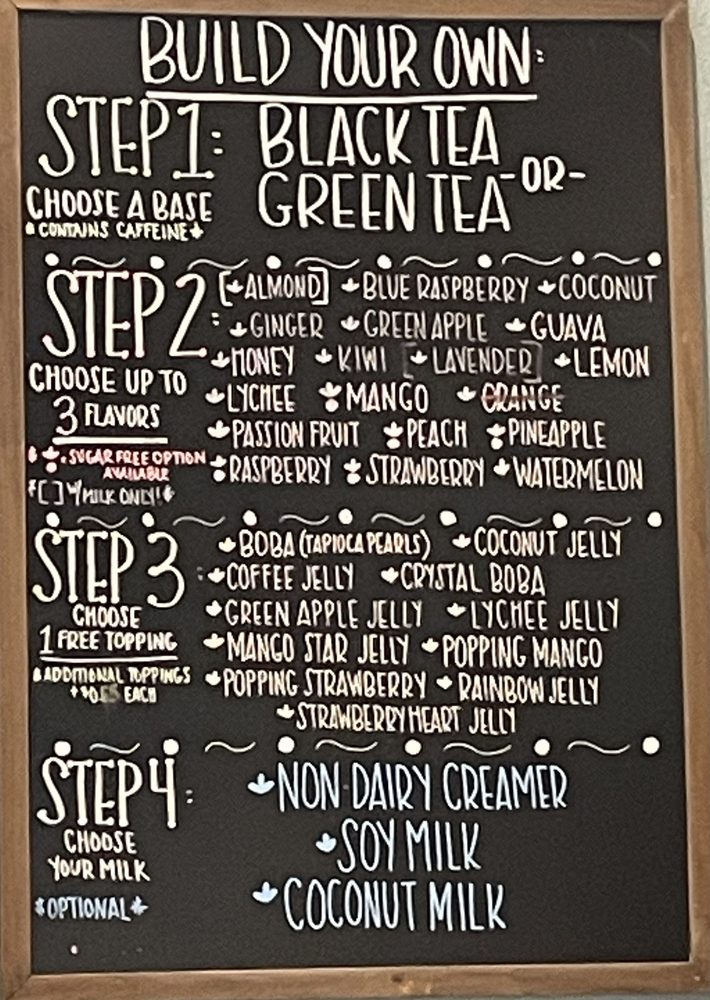 BUILD YOUR OWN:
STEP 1: BLACK TEA
-OR-
GREEN TEA
CHOOSE A BASE
*CONTAINS CAFFEINE*
STEP 2: [ALMOND] BLUE RASPBERRY COCONUT
GINGER GREEN APPLE GUAVA
HONEY KIWI [LAVENDER] LEMON
CHOOSE UP TO
3 FLAVORS
LYCHEE MANGO ORANGE
PASSION FRUIT PEACH PINEAPPLE
RASPBERRY STRAWBERRY WATERMELON
SUGAR FREE OPTION
AVAILABLE
*[ ] W/ MILK ONLY!*
STEP 3: BOBA (TAPIOCA PEARLS) COCONUT JELLY
COFFEE JELLY CRYSTAL BOBA
GREEN APPLE JELLY LYCHEE JELLY
MANGO STAR JELLY POPPING MANGO
POPPING STRAWBERRY RAINBOW JELLY
STRAWBERRY HEART JELLY
CHOOSE
1 FREE TOPPING
*ADDITIONAL TOPPINGS
EACH
STEP 4: NON DAIRY CREAMER
SOY MILK
COCONUT MILK
CHOOSE
YOUR MILK
*OPTIONAL*